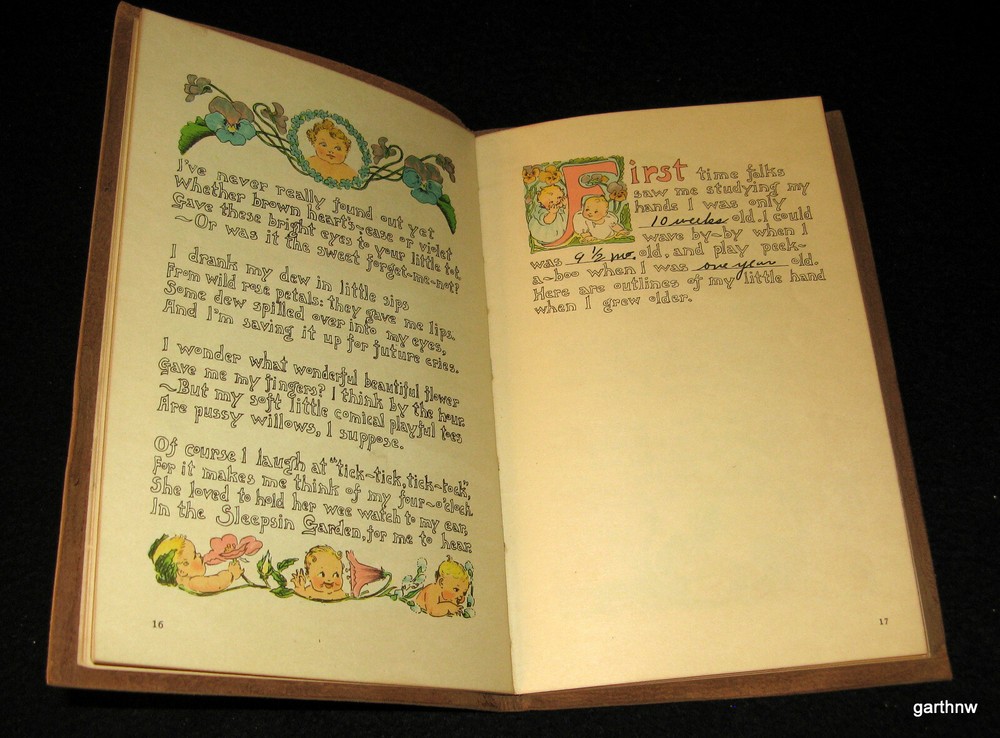 I've never really found out yet
Whether brown heart's-ease or violet
Gave these bright eyes to your little tot
~Or was it the sweet forget-me-not?
I drank my dew in little sips
From wild rose petals: they gave me lips.
Some dew spilled over into my eyes,
And I'm saving it up for future cries.
I wonder what wonderful beautiful flower
Gave me my fingers? I think by the hour.
~But my soft little comical playful toes
Are pussy willows, I suppose.
Of course I laugh at "tick-tick, tick-tock",
For it makes me think of my four-o'clock
She loved to hold her wee watch to my ear,
In the Sleepsin Garden, for me to hear.
16
First time folks
saw me studying my
hands I was only
10 weeks old. I could
wave by-by when I
was 9 1/2 mo. old, and play peek-
a-boo when I was one year old.
Here are outlines of my little hand
when I grew older.
17
garthnw